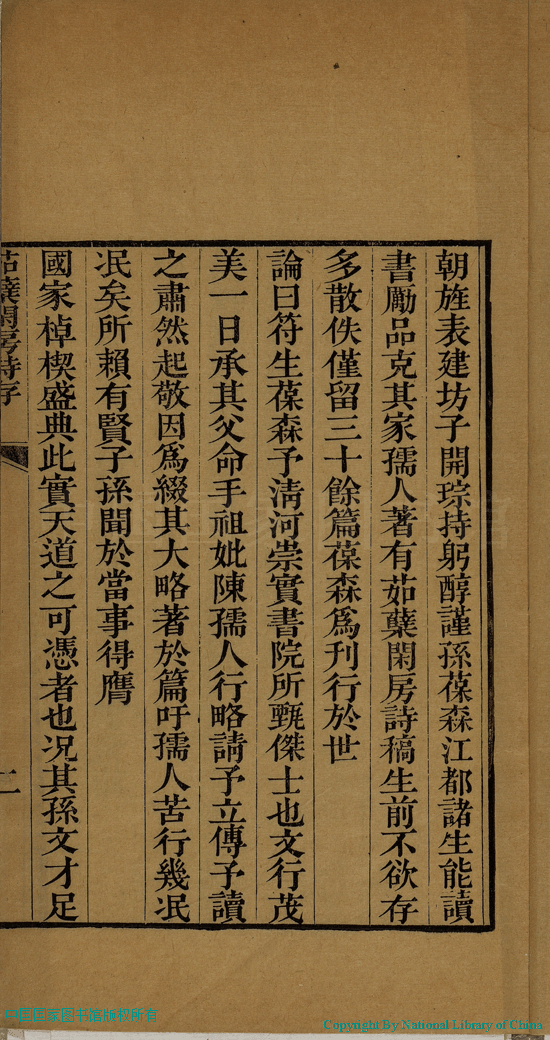 朝旌表建坊子開琮持躬醇謹孫葆森江都諸生能讀
書勵品克其家孺人著有茹蘗閑房詩稿生前不欲存
多散佚僅留三十餘篇葆森為刊行於世
論曰符生葆森予淸河崇實書院所甄傑士也文行茂
美一日承其父命手祖妣陳孺人行略請予立傳予讀
之肅然起敬因為綴其大略著於篇吁孺人苦行幾冺
冺矣所賴有賢子孫聞於當事得膺
國家棹楔盛典此實天道之可憑者也况其孫文才足
茹蘗閑房詩存
二
中国国家图书馆版权所有
Copyright By National Library of China